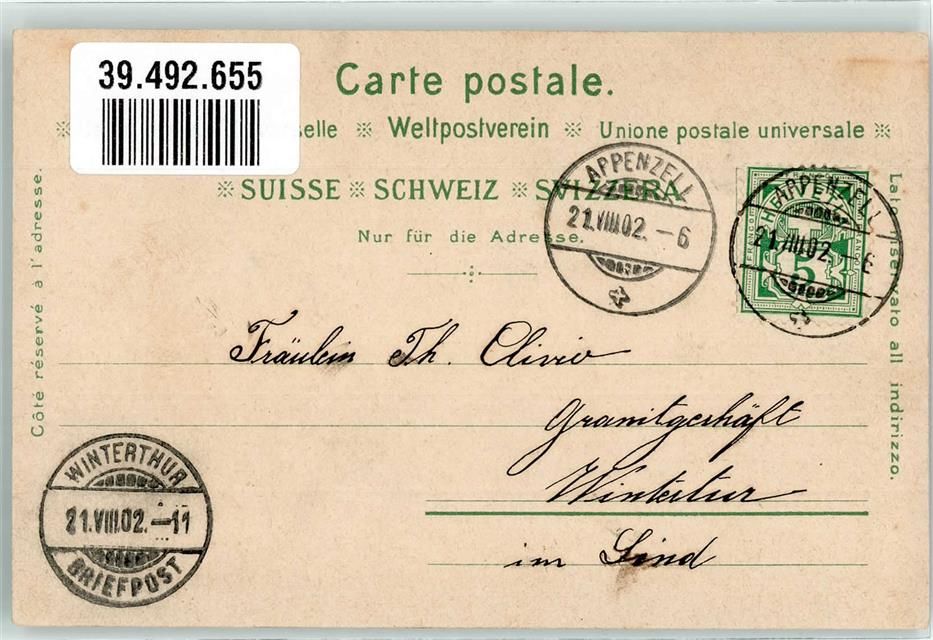 39.492.655
Carte postale.
selle ※ Weltpostverein ※ Unione postale universale ※
※ SUISSE ※ SCHWEIZ ※ SVIZZERA
Nur für die Adresse.
Côté réservé à l'adresse.
Lato riservato all indirizzo.
APPENZELL
21.VIII.02.-6
APPENZELL
21.VIII.02.-6
HELVETIA
FRANCO
FRANCO
5
Fräulein Th. Clivio
Granitgeshäft
Wintertur
im Lind
WINTERTHUR
21.VIII.02.-11
BRIEFPOST